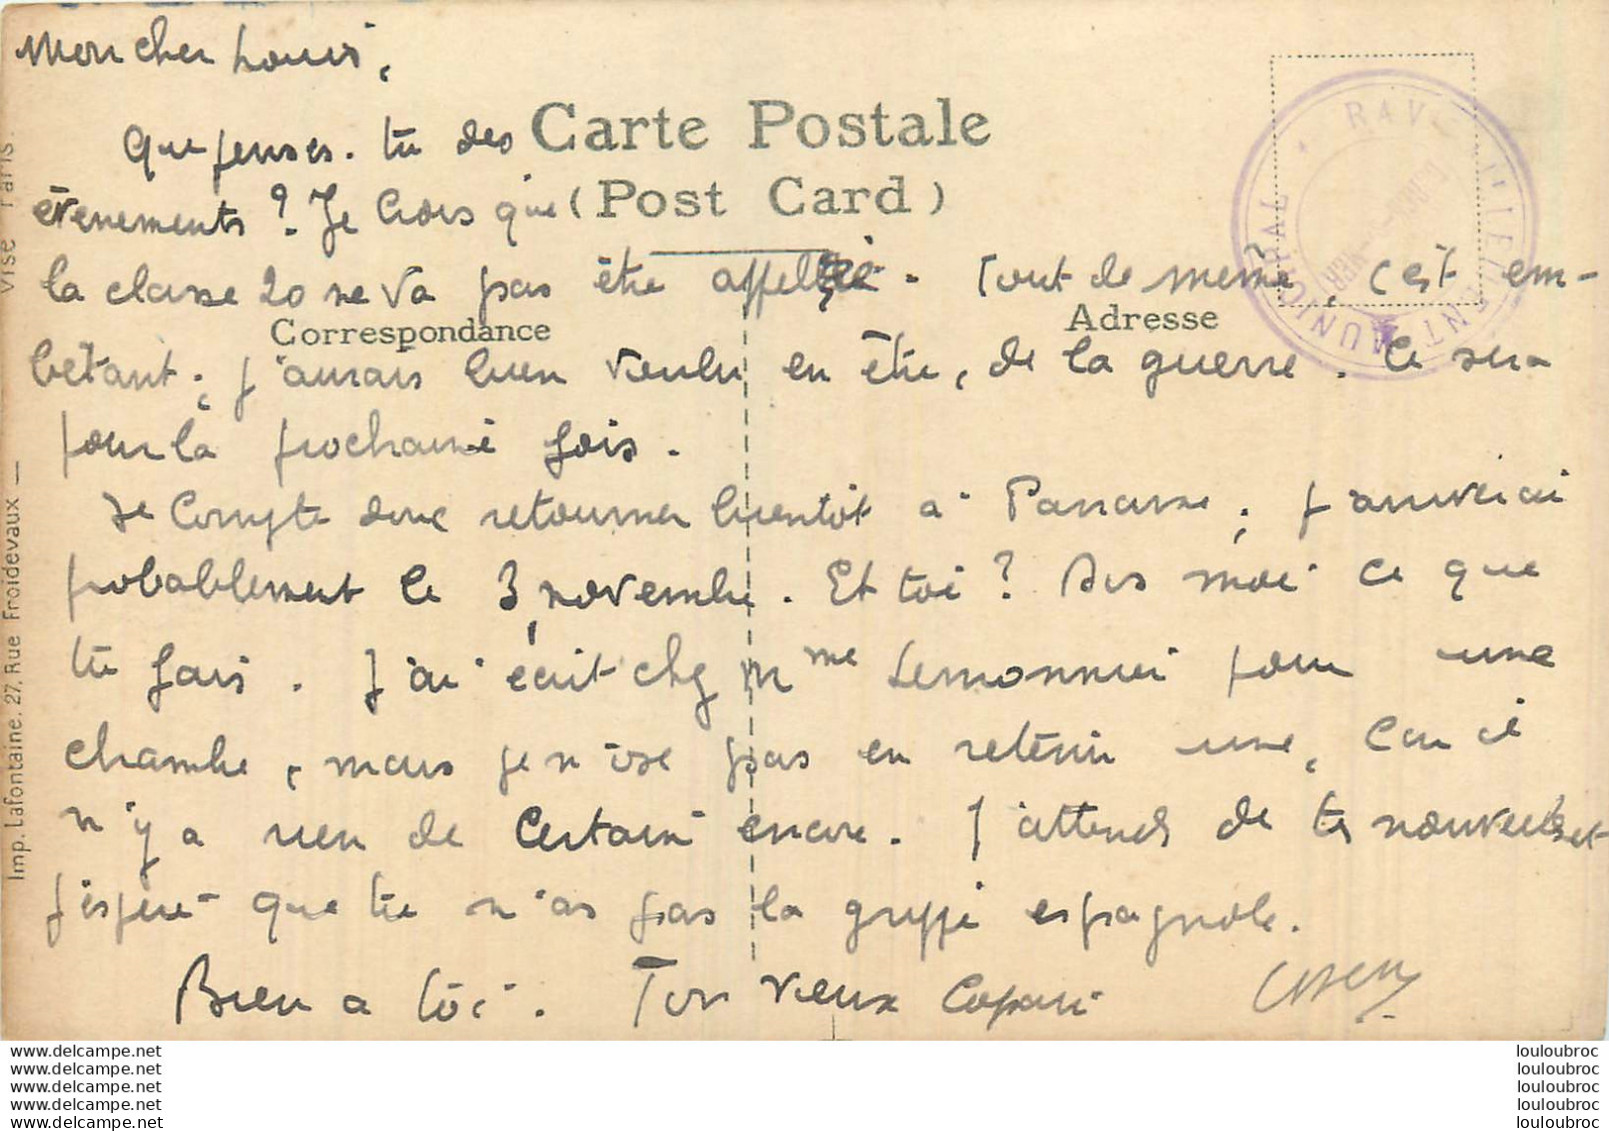 Mon cher Louis,
Carte Postale
Que penses-tu des
(Post Card)
évenements? Je crois que
la classe 20 ne va pas être appelée. Tout de même, c'est em-
Correspondance
Adresse
bêtant; j'aurais bien voulu en être, de la guerre. Ce sera
pour la prochaine fois.
Je compte donc retourner bientôt à ; j'arriverai
probablement le 3 novembre. Et toi? Dis moi ce que
tu fais. J'ai écrit chez Mme Lemonnier pour une
chambre, mais je n'ose pas en retenir une, car il
n'y a rien de certain encore. J'attends de tes nouvelles et
j'espère que tu n'as pas la grippe espagnole.
Bien à toi. Ton vieux copain
VISÉ PARIS.
Imp. Lafontaine. 27, Rue Froidevaux —
RAV MUNICIPAL
www.delcampe.net
www.delcampe.net
www.delcampe.net
www.delcampe.net
www.delcampe.net
louloubroc
louloubroc
louloubroc
louloubroc
louloubroc